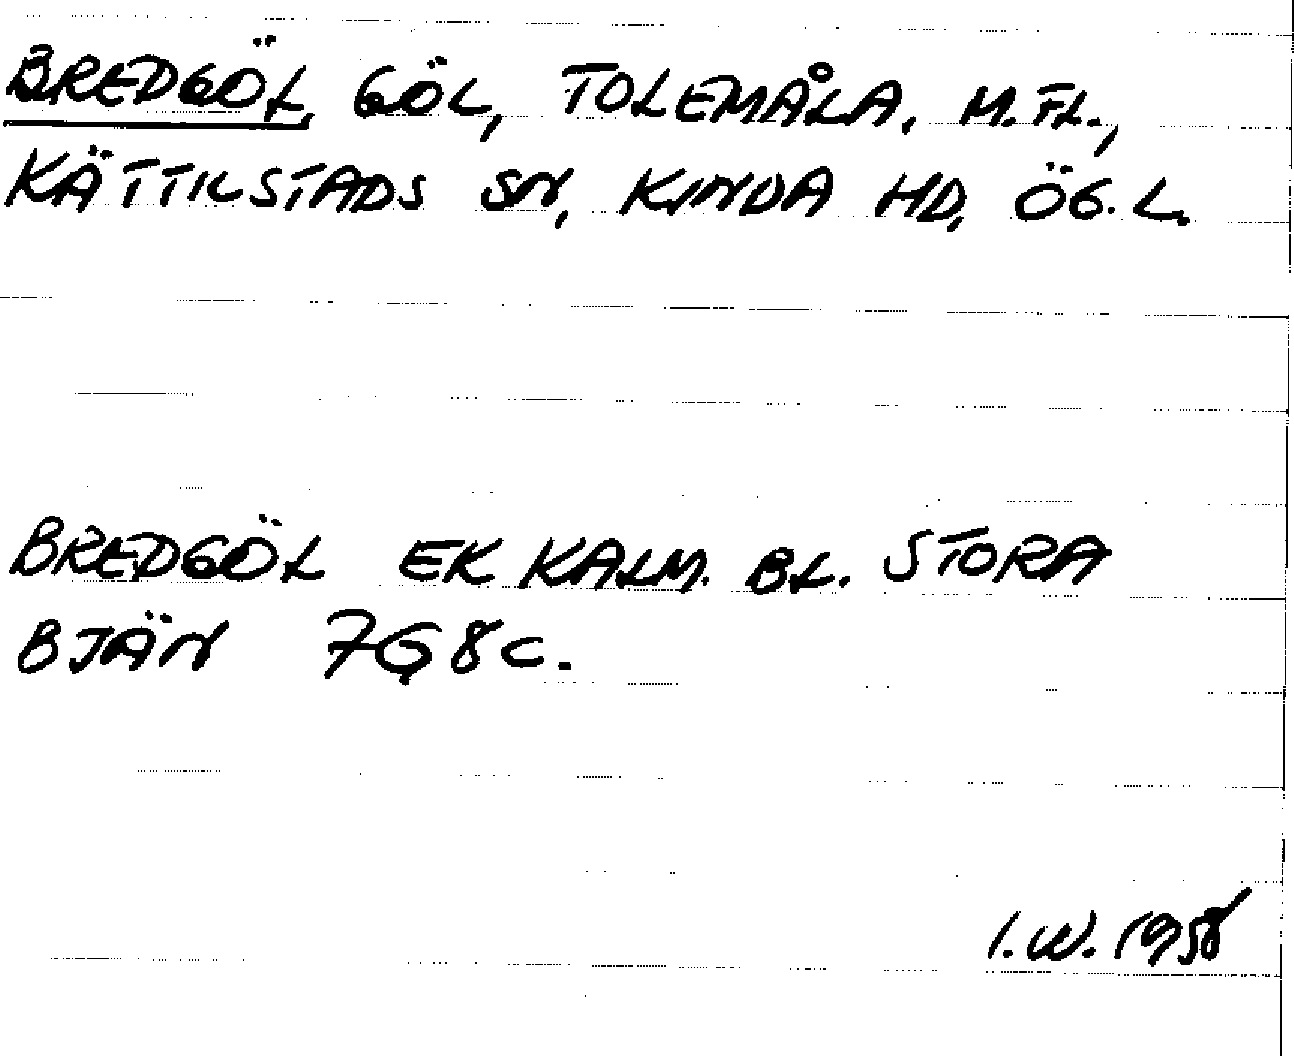 BREDGÖL, GÖL, TOLEMÅLA, M.FL.,
KÄTTILSTADS SN, KINDA HD, ÖG.L.
BREDGÖL EK KALM. BL. STORA
BJÄN 7G8c.
I.W. 1958